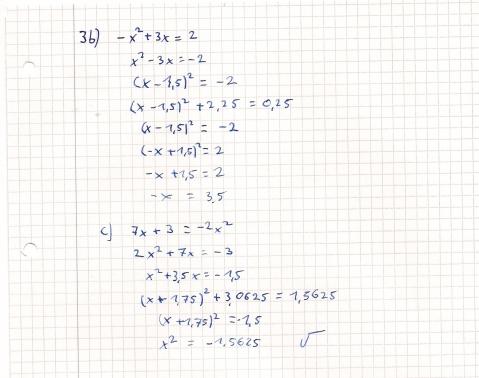 3b) -x² + 3x = 2
x² - 3x = -2
(x - 1,5)² = -2
(x - 1,5)² + 2,25 = 0,25
(x - 1,5)² = -2
(-x + 1,5)² = 2
-x + 1,5 = 2
-x = 3,5
c) 7x + 3 = -2x²
2x² + 7x = -3
x² + 3,5x = -1,5
(x + 1,75)² + 3,0625 = 1,5625
(x + 1,75)² = -1,5
x² = -1,5625 √